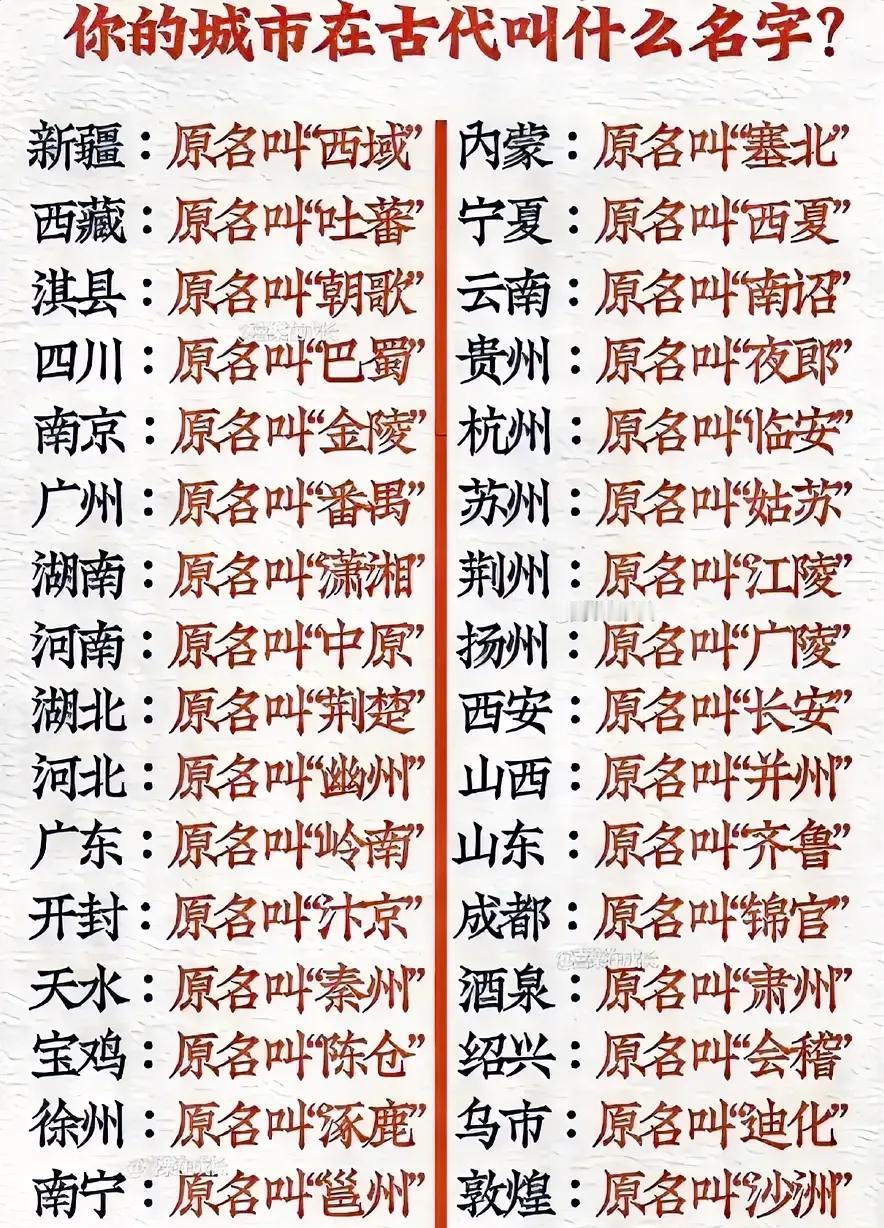 你的城市在古代叫什么名字？
新疆：原名叫“西域”
西藏：原名叫“吐蕃”
淇县：原名叫“朝歌”
四川：原名叫“巴蜀”
南京：原名叫“金陵”
广州：原名叫“番禺”
湖南：原名叫“潇湘”
河南：原名叫“中原”
湖北：原名叫“荆楚”
河北：原名叫“幽州”
广东：原名叫“岭南”
开封：原名叫“汴京”
天水：原名叫“秦州”
宝鸡：原名叫“陈仓”
徐州：原名叫“涿鹿”
南宁：原名叫“邕州”
内蒙：原名叫“塞北”
宁夏：原名叫“西夏”
云南：原名叫“南诏”
贵州：原名叫“夜郎”
杭州：原名叫“临安”
苏州：原名叫“姑苏”
荆州：原名叫“江陵”
扬州：原名叫“广陵”
西安：原名叫“长安”
山西：原名叫“并州”
山东：原名叫“齐鲁”
成都：原名叫“锦官”
酒泉：原名叫“肃州”
绍兴：原名叫“会稽”
乌市：原名叫“迪化”
敦煌：原名叫“沙洲”